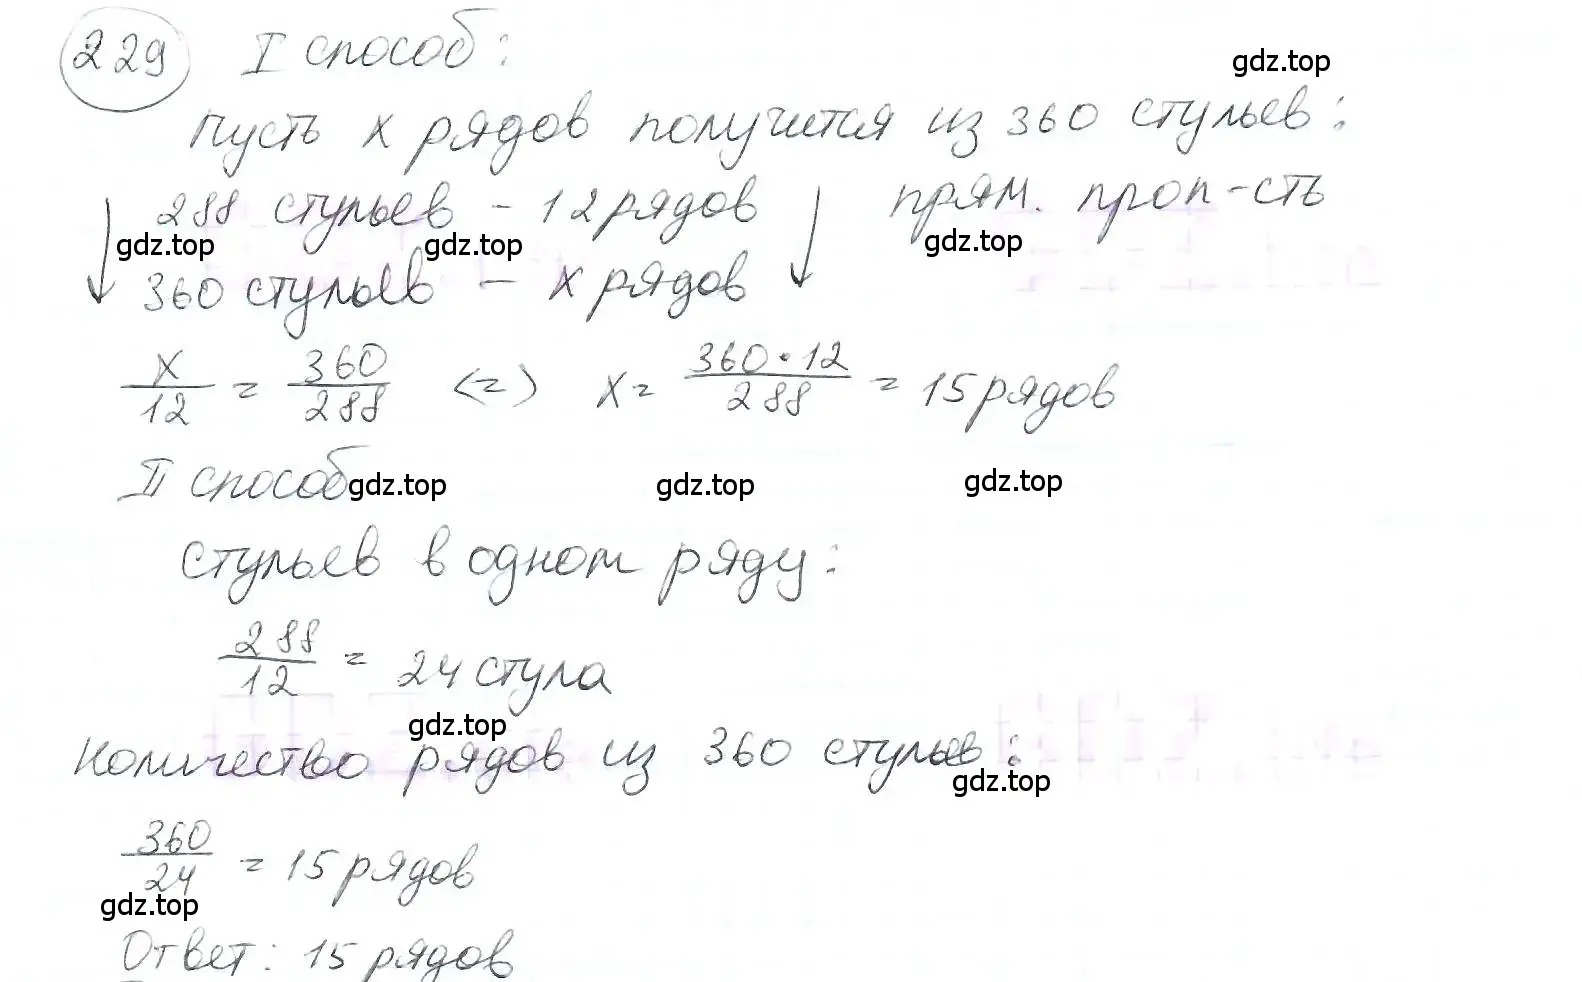 229 I способ:
gdz.top
Пусть x рядов получится из 360 стульев:
288 стульев - 12 рядов прям. проп-сть
gdz.top gdz.top gdz.top
360 стульев - x рядов
x/12 = 360/288 <=> x = 360·12/288 = 15 рядов
II способ
gdz.top gdz.top gdz.top
стульев в одном ряду:
288/12 = 24 стула
gdz.top
Количество рядов из 360 стульев:
gdz.top
360/24 = 15 рядов
gdz.top
Ответ: 15 рядов